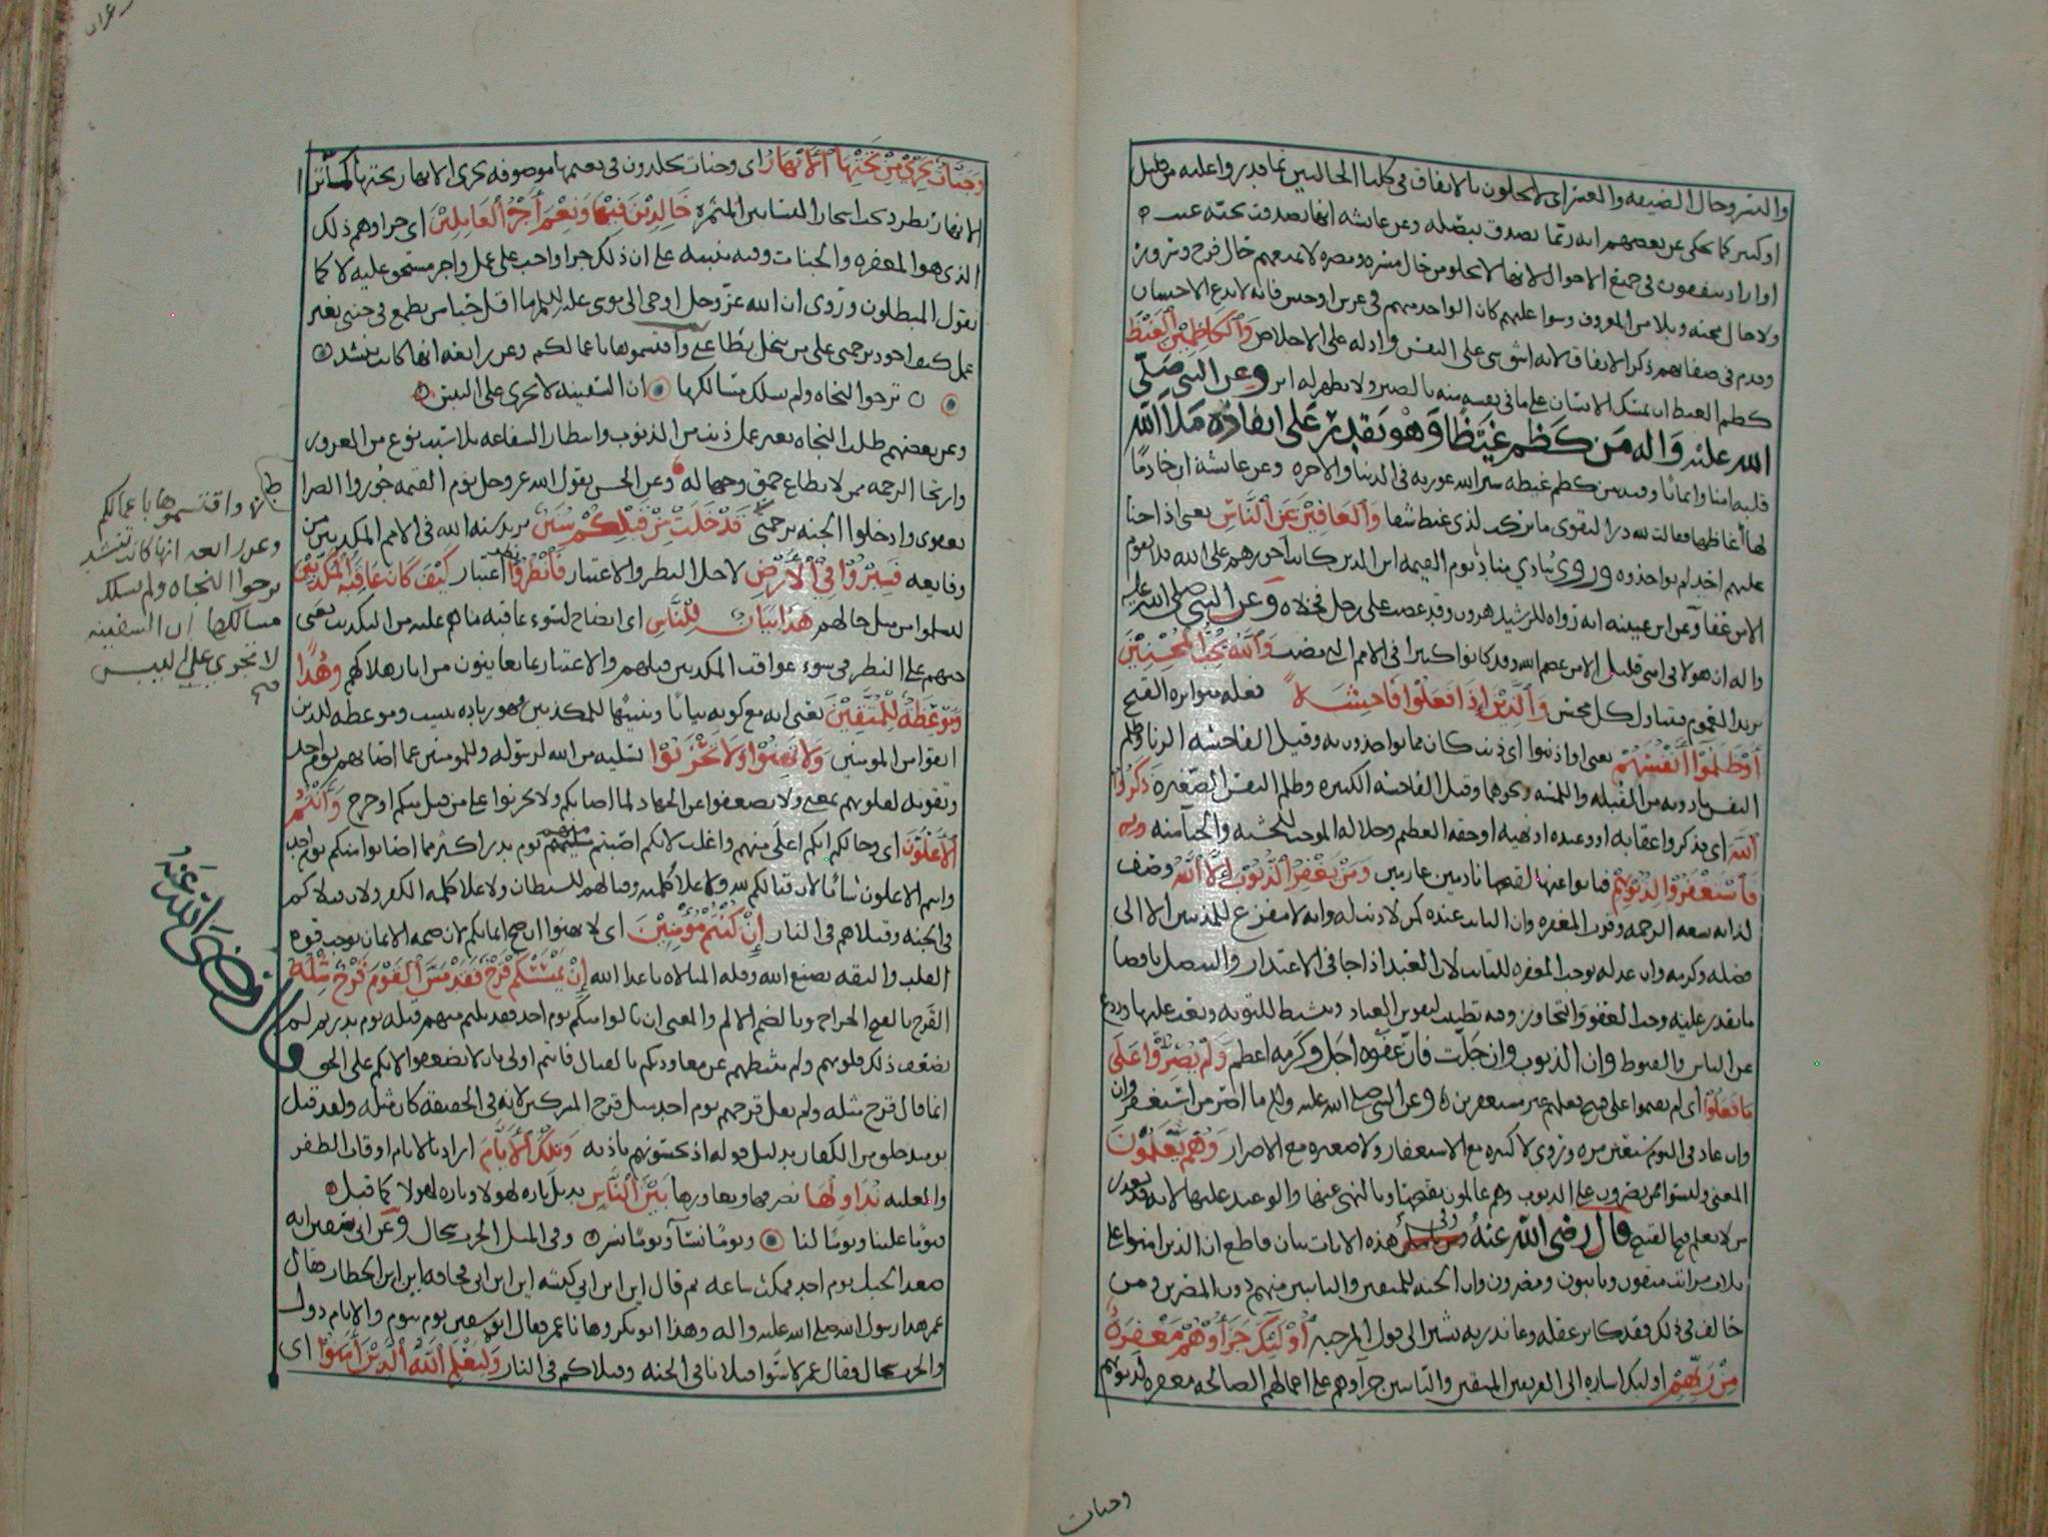 واليسر وحال الضيقه والعسر اى لا يخلون بالانفاق فى كلتا الحالتين بما قدروا عليه من قليل
او كثير كما يحكى عن بعضهم انه ربما تصدق ببصله وعن عائشه انها تصدقت بحبه عنب
او اراد ينفقون فى جميع الاحوال لانها لا تخلو من حال مسره ومضره لا تمنعهم حال فرح وسرور
ولا حال محنه وبلا من المعروف وسوا عليهم كان الواحد منهم فى عرس او حبس فانه لا يدع الاحسان
وقدم فى صفاتهم ذكر الانفاق لانه اشق شى على النفس وادله على الاخلاص وَالْكَاظِمِيْنَ الْغَيْظَ
كظم الغيظ ان يمسك الانسان على ما فى نفسه منه بالصبر ولا يظهر له اثر وعن النبى صلى
الله عليه واله من كظم غيظا وهو يقدر على انفاذه ملأ الله
قلبه امنا وايمانا وقيل من كظم غيظه ستر الله عوره فى الدنيا والاخره وعن عائشة ان خادما
لها أغاظها فقالت لله در التقوى ما تركت لذى غيظ شفا وَالْعَافِيْنَ عَنِ النَّاسِ يعنى اذا جنا
عليهم احد لم يواخذوه وروى ينادي مناد يوم القيمه اين الذين كانت اجورهم على الله فلا يقوم
الا من عفا وعن ابن عيينه انه رواه للرشيد هرون وقد غضب على رجل فخلاه وعن النبى صلى الله عليه
واله ان هولا فى امتى قليل الا من عصم الله وقد كانوا كثيرا فى الامم التى مضت وَاللَّهُ يُحِبُّ الْمُحْسِنِيْنَ
يريد العموم فيتناول كل محسن وَالَّذِيْنَ إِذَا فَعَلُوْا فَاحِشَةً فعله متزايده القبح
أَوْ ظَلَمُوْا أَنْفُسَهُمْ يعنى او اذنبوا اى ذنب كان مما يواخذون به وقيل الفاحشه الزنا وظلم
النفس ما دونه من القبله واللمسه ونحوهما وقيل الفاحشه الكبيره وظلم النفس الصغيره ذَكَرُوا
اللهَ اى تذكروا عقابه او وعيده او نهيه او حقه العظيم وجلاله الموجب للخشيه والحيا منه
فَاسْتَغْفَرُوْا لِذُنُوْبِهِمْ فتابوا عنها لقبحها نادمين عازمين وَمَنْ يَغْفِرُ الذُّنُوْبَ إِلَّا اللَّهُ وصف
لذاته بسعه الرحمه وقرب المغفره وان التايب عنده كمن لا ذنب له وانه لا مفزع للمذنبين الا الى
فضله وكرمه وان عدله يوجب المغفره للتايب لان العبد اذا جا فى الاعتذار والتنصل باقصا
ما يقدر عليه وجب العفو والتجاوز وفيه تطييب لنفوس العباد وتنشيط للتوبه وبعث عليها وردع
عن الياس والقنوط وان الذنوب وان جلت فان عفوه اجل وكرمه اعظم وَلَمْ يُصِرُّوْا عَلَى
مَا فَعَلُوْا أى لم يقيموا على قبيح فعلهم غير مستغفرين وعن النبى صلى الله عليه واله ما اصر من استغفر وان
وان عاد فى اليوم سبعين مره وروى لا كبيره مع الاستغفار ولا صغيره مع الاصرار وَهُمْ يَعْلَمُوْنَ
المعنى وليسوا ممن يصرون على الذنوب وهم عالمون بقبحها وبالنهى عنها والوعيد عليها لانه قد يعذر
من لا يعلم قبح القبيح قال رضى الله عنه وفى هذه الايات بيان قاطع ان الذين امنوا على
ثلاث مراتب متقون وتايبون ومصرون وان الجنه للمتقين والتايبين منهم دون المصرين ومن
خالف فى ذلك فقد كابر عقله وعاند ربه يشير الى قول المرجيه أُوْلَئِكَ جَزَاؤُهُمْ مَغْفِرَةٌ
مِنْ رَبِّهِمْ اوليك اشاره الى الفريقين المتقين والتايبين جزآوهم على اعمالهم الصالحه مغفره لذنوبهم
وجنات
وَجَنَّاتٌ تَجْرِيْ مِنْ تَحْتِهَا الْأَنْهَارُ اى وجنات يخلدون فى نعيمها موصوفه تجرى الانهار تحتها
الانهار تطرد تحت اشجار البساتين المثمره خَالِدِيْنَ فِيْهَا وَنِعْمَ أَجْرُ الْعَامِلِيْنَ اى جزاوهم ذلك
الذى هو المغفره والجنات وفيه تنبيه على ان ذلك جزا واجب على عمل واجر مستحق عليه لا كما
يقول المبطلون وروى ان الله عز وجل اوحى الى موسى عليه السلم ما اقل حيا من يطمع فى جنتى بغير
عمل كيف اجود برحمتى على من يبخل بطاعتى واقتسموها باعمالكم وعن رابعه انها كانت تنشد
ترجوا النجاه ولم تسلك مسالكها ان السفينه لا تجرى على اليبس
وعن بعضهم طلب النجاه بغير عمل ذنب من الذنوب وانتظار الشفاعه بلا سبب نوع من الغرور
وارتجا الرحمه ممن لا يطاع حمق وجهاله وعن الحسن يقول الله عز وجل يوم القيمه جوزوا الصراط
بعفوى وادخلوا الجنه برحمتى قَدْ خَلَتْ مِنْ قَبْلِكُمْ سُنَنٌ يريد سنه الله فى الامم المكذبين من
وقايعه فَسِيْرُوْا فِي الْأَرْضِ لاجل النظر والاعتبار فَانْظُرُوْا نظر اعتبار كَيْفَ كَانَ عَاقِبَةُ الْمُكَذِّبِيْنَ
لتسلموا من مثل حالهم هَذَا بَيَانٌ لِلنَّاسِ اى ايضاح لسوء عاقبه ما هم عليه من التكذيب يعنى
حثهم على النظر فى سوء عواقب المكذبين قبلهم والاعتبار بما يعاينون من اثار هلاكهم وَهُدًا
وَمَوْعِظَةٌ لِلْمُتَّقِيْنَ يعنى انه مع كونه بيانا وتنبيها للمكذبين فهو زياده تثبيت وموعظه للذين
اتقوا من المومنين وَلَا تَهِنُوْا وَلَا تَحْزَنُوْا تسليه من الله لرسوله وللمومنين عما اصابهم يوم احد
وتقويه لقلوبهم يعنى ولا تضعفوا عن الجهاد لما اصابكم ولا تحزنوا على من قتل منكم او جرح وَأَنْتُمُ
الْأَعْلَوْنَ اى وحالكم انكم اعلى منهم واغلب لانكم اصبتم منهم يوم بدر اكثر مما اصابوا منكم يوم احد
وانتم الاعلون شانا لان قتالكم لله ولاعلا كلمته وقتالهم للشيطان ولاعلا كلمه الكفر ولان قتلاكم
فى الجنه وقتلاهم فى النار إِنْ كُنْتُمْ مُؤْمِنِيْنَ اى لا تهنوا ان صح ايمانكم لان صحه الايمان توجب قوه
القلب والثقه بصنع الله وقله المبالاه باعدا الله إِنْ يَمْسَسْكُمْ قَرْحٌ فَقَدْ مَسَّ الْقَوْمَ قَرْحٌ مِثْلُهُ
القرح بالفتح الجراح وبالضم الالم والمعنى ان نالوا منكم يوم احد فقد نلتم منهم قبله يوم بدر ثم لم
يضعف ذلك قلوبهم ولم يثبطهم عن معاودتكم بالقتال فانتم اولى بان لا تضعفوا لانكم على الحق
انما قال قرح مثله ولم يقل قرحهم يوم احد مثل قرح المشركين لانه فى الحقيقه كان مثله ولقد قتل
يوميذ خلق من الكفار بدليل قوله اذ تحسونهم باذنه وَتِلْكَ الْأَيَّامُ اراد بالايام اوقات الظفر
والغلبه نُدَاوِلُهَا نصرفها ونعاورها بَيْنَ النَّاسِ نديل تاره لهولا وتاره لهولا كما قيل
فيوما علينا ويوما لنا ويوما نسآ ويوما نسر وفى المثل الحرب سجال وعن ابى سفين انه
صعد الجبل يوم احد فمكث ساعه ثم قال اين ابن ابى كبشه اين ابن ابى قحافه اين ابن الخطاب فقال
عمر هذا رسول الله صلى الله عليه واله وهذا ابو بكر وها نا عمر فقال ابو سفين يوم بيوم والايام دول
والحرب سجال فقال عمر لا سوا قتلانا فى الجنه وقتلاكم فى النار وَلِيَعْلَمَ اللَّهُ الَّذِيْنَ آمَنُوْا اى
واقتسموها باعمالكم
وعن رابعه انها كانت تنشد
ترجوا النجاه ولم تسلك
مسالكها ان السفينه
لا تجري على اليبس
قال رضى الله عنه